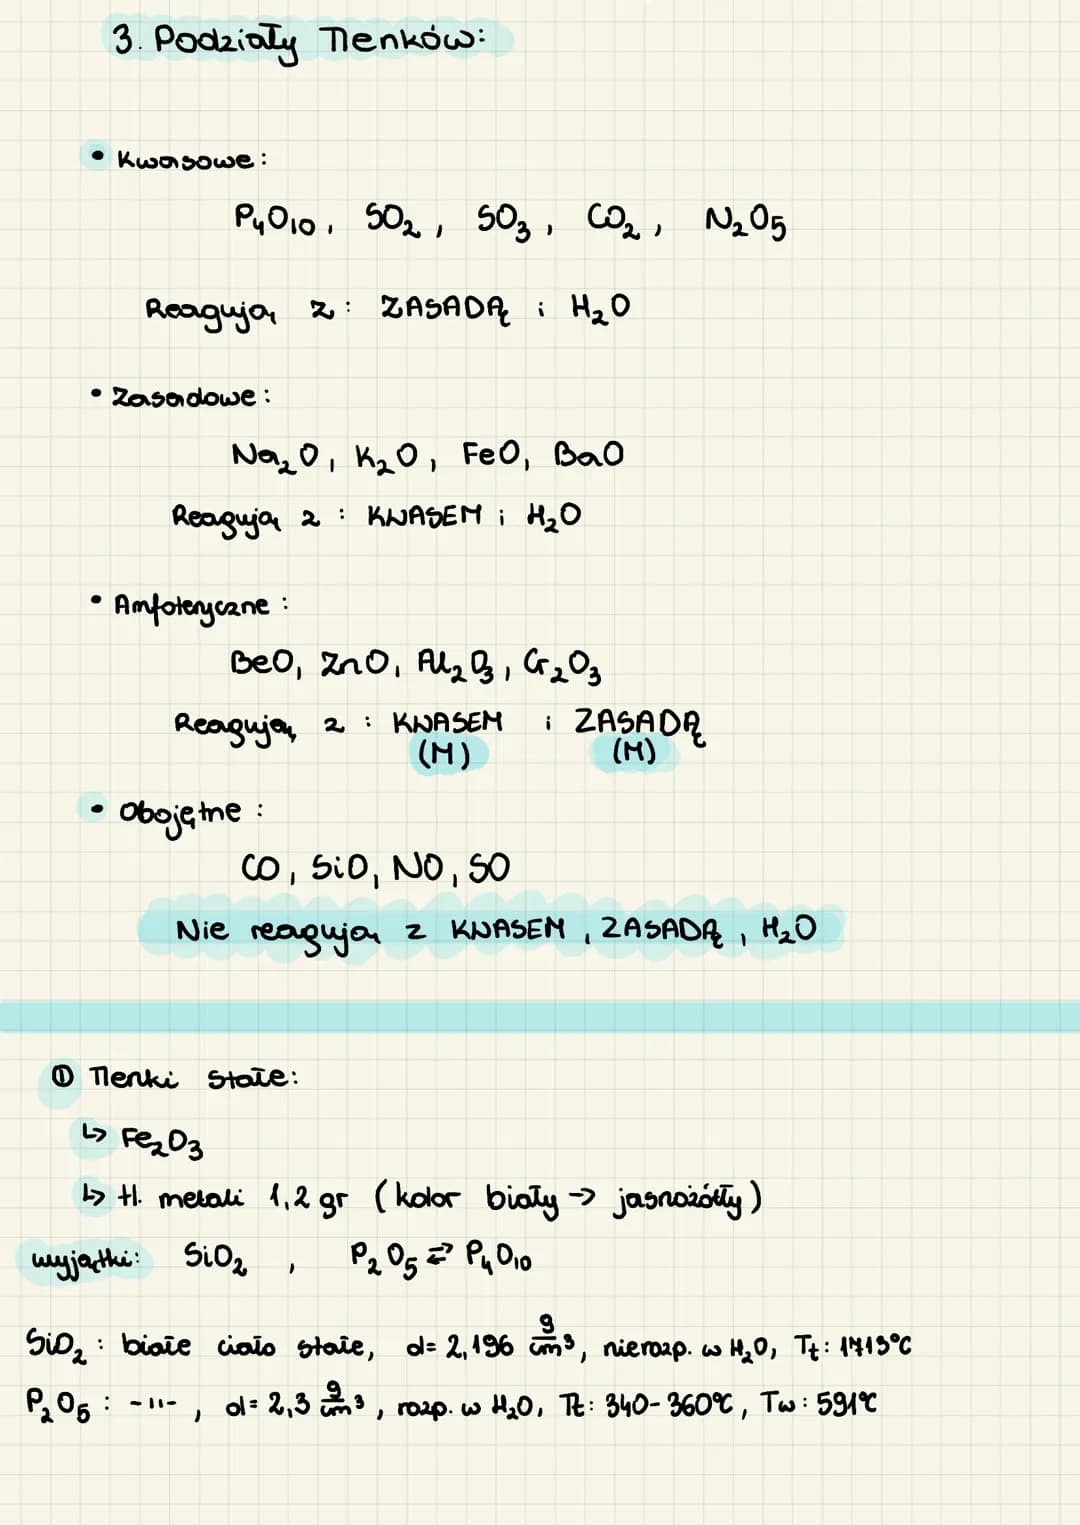 3. Podziały Tlenków:
• Kwasowe:
P₄O₁₀, SO₂, SO₃, CO₂, N₂O₅
Reagują z: ZASADĄ i H₂O
• Zasadowe:
Na₂O, K₂O, FeO, BaO
Reagują z: KWASEM i H₂O
• Amfoteryczne:
BeO, ZnO, Al₂O₃, Cr₂O₃
Reagują z: KWASEM i ZASADĄ
(M) (M)
• Obojętne:
CO, SiO, NO, SO
Nie reagują z KWASEM, ZASADĄ, H₂O
① Tlenki stałe:
↳ Fe₂O₃
↳ tl. metali 1,2 gr (kolor biały → jasnożółty)
wyjątki: SiO₂, P₂O₅ ⇄ P₄O₁₀
SiO₂: białe ciało stałe, d= 2,196 g/cm³, nierozp. w H₂O, Tt: 1713°C
P₂O₅: -11-, d= 2,3 g/cm³, rozp. w H₂O, Tt: 340-360°C, Tw: 591°C